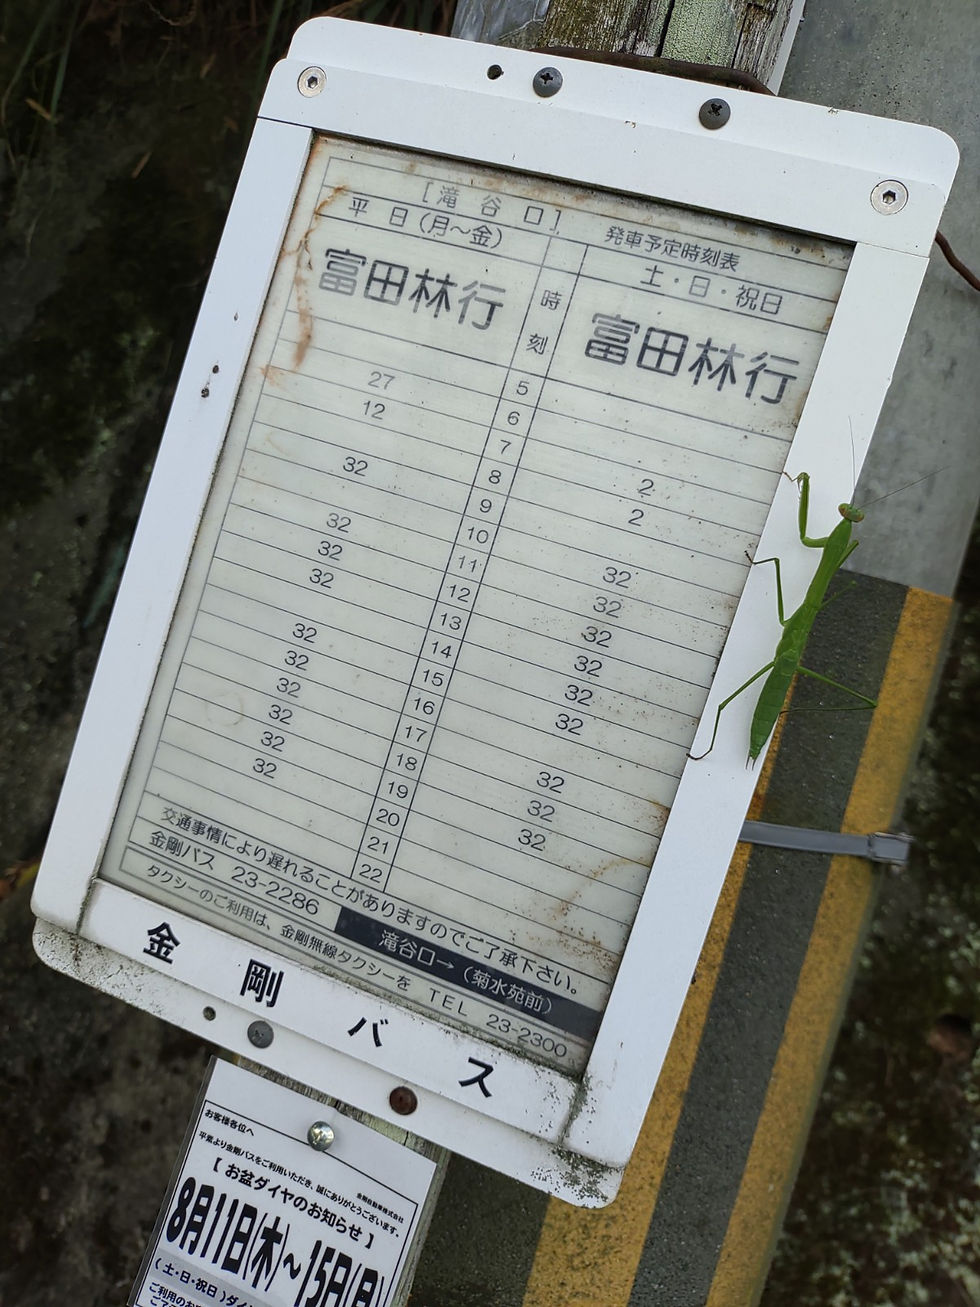 [滝谷口] 発車予定時刻表
平日(月～金) 時刻 土・日・祝日
富田林行 富田林行
5
27 6
12 7 2
8 2
32 9
10 32
32 11 32
32 12 32
32 13 32
14 32
32 15 32
32 16
32 17 32
32 18 32
32 19 32
32 20
21
22
交通事情により遅れることがありますのでご了承下さい。
金剛バス 23-2286 滝谷口→(菊水苑前)
タクシーのご利用は、金剛無線タクシーを TEL 23-2300
金剛バス
お客様各位へ
金剛自動車株式会社
平素より金剛バスをご利用いただき、誠にありがとうございます。
【お盆ダイヤのお知らせ】
8月11日(木)～15日(月)
(土・日・祝日)ダイ